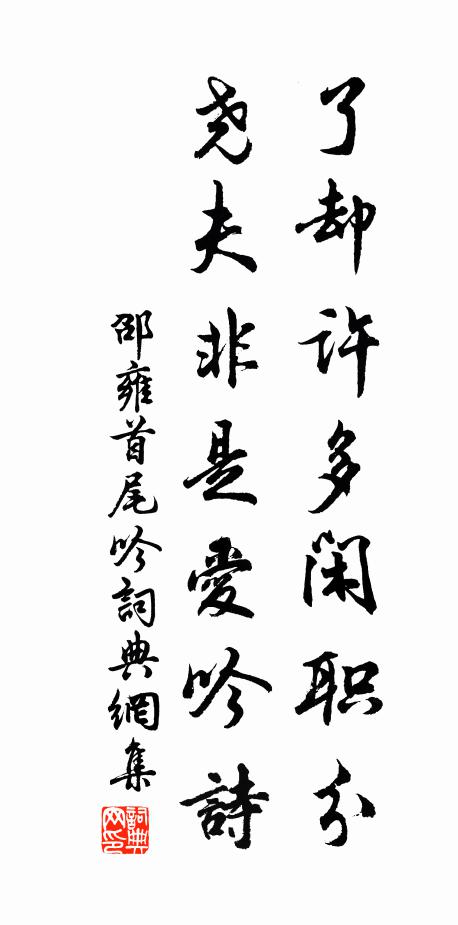 了却许多闲职分
尧夫非是爱吟詩
邵雍首尾吟詞典網集
詞典網印